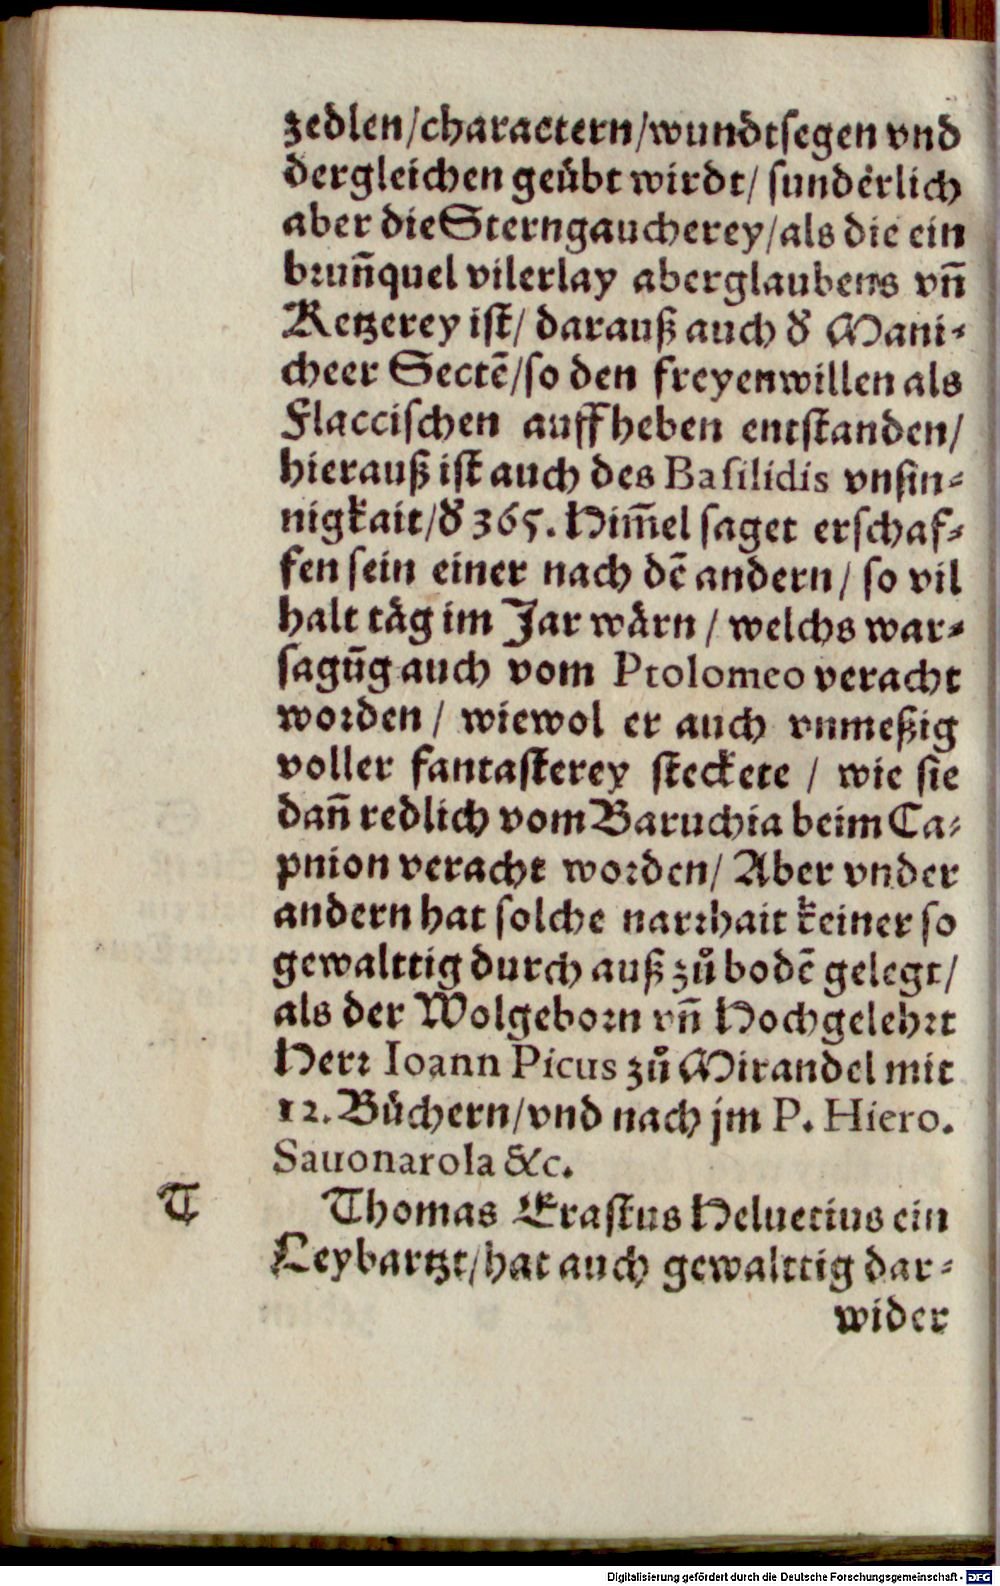 zedlen/charactern/wundtsegen vnd
dergleichen geübt wirdt/ sunderlich
aber die Sterngaucherey/als die ein
brun̄quel vilerlay aberglaubens vn̄
Ketzerey ist/ darauß auch d̕ Mani-
cheer Sectē/so den freyenwillen als
Flaccischen auffheben entstanden/
hierauß ist auch des Basilidis vnsin-
nigkait/d̕ 365. Him̄el saget erschaf-
fen sein einer nach dē andern/ so vil
halt täg im Jar wärn / welchs war-
sagūg auch vom Ptolomeo veracht
worden / wiewol er auch vnmeßig
voller fantasterey steckete / wie sie
dan̄ redlich vom Baruchia beim Ca-
pnion veracht worden/ Aber vnder
andern hat solche narrhait keiner so
gewalttig durch auß zů bodē gelegt/
als der Wolgeborn vn̄ Hochgelehrt
Herr Ioann Picus zů Mirandel mit
12. Büchern/vnd nach jm P. Hiero.
Sauonarola &c.
T Thomas Erastus Heluetius ein
Leybartzt/hat auch gewalttig dar-
wider
Digitalisierung gefördert durch die Deutsche Forschungsgemeinschaft - DFG